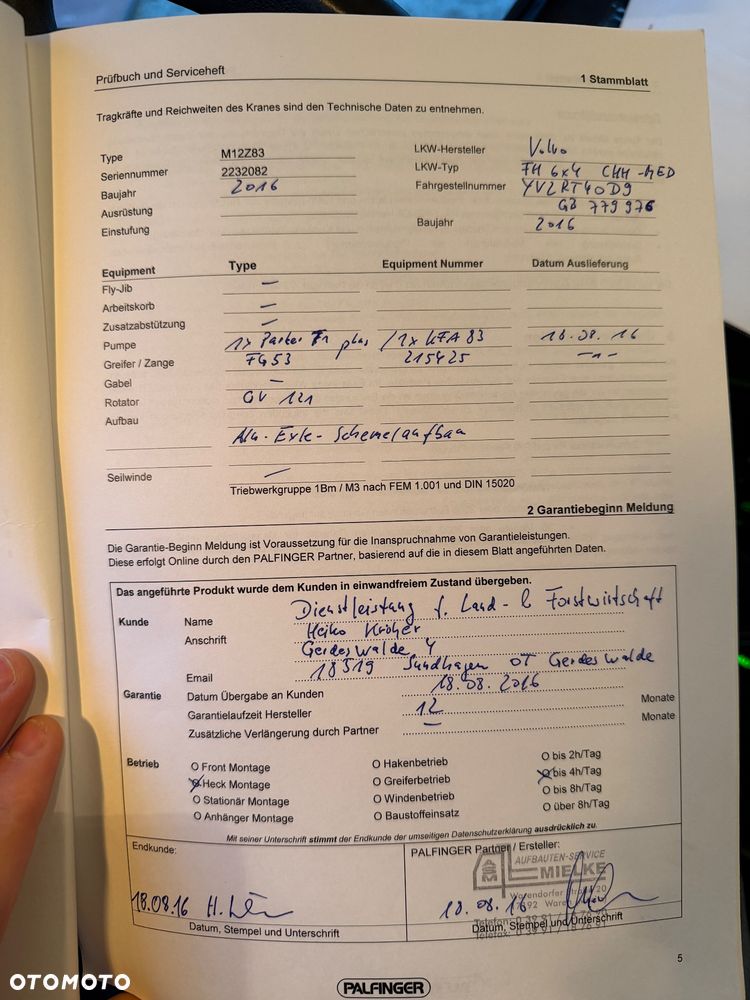 Prüfbuch und Serviceheft 1 Stammblatt
Tragkräfte und Reichweiten des Kranes sind den Technische Daten zu entnehmen.
Type M12Z83 LKW-Hersteller Volvo
Seriennummer 2232082 LKW-Typ FH 6x4 CHH-MED
Baujahr 2016 Fahrgestellnummer YV2RT40D9
Ausrüstung GB 779976
Einstufung Baujahr 2016
Equipment Type Equipment Nummer Datum Auslieferung
Fly-Jib —
Arbeitskorb —
Zusatzabstützung —
Pumpe 1x Parker F1 plus / 1x KFA 83 18.08.16
Greifer / Zange FG53 215425 —"—
Gabel —
Rotator GV 121
Aufbau
Alu-Exte-Schemelaufbau
Seilwinde —
Triebwerkgruppe 1Bm / M3 nach FEM 1.001 und DIN 15020
2 Garantiebeginn Meldung
Die Garantie-Beginn Meldung ist Voraussetzung für die Inanspruchnahme von Garantieleistungen.
Diese erfolgt Online durch den PALFINGER Partner, basierend auf die in diesem Blatt angeführten Daten.
Das angeführte Produkt wurde dem Kunden in einwandfreiem Zustand übergeben.
Kunde Name Dienstleistung f. Land- & Forstwirtschaft
Anschrift Heiko Kröher
Gerdeswalde 4
Email 18519 Sundhagen OT Gerdeswalde
Garantie Datum Übergabe an Kunden 18.08.2016
Garantielaufzeit Hersteller 12 Monate
Zusätzliche Verlängerung durch Partner — Monate
Betrieb O Front Montage O Hakenbetrieb O bis 2h/Tag
O Heck Montage O Greiferbetrieb O bis 4h/Tag
O Stationär Montage O Windenbetrieb O bis 8h/Tag
O Anhänger Montage O Baustoffeinsatz O über 8h/Tag
Mit seiner Unterschrift stimmt der Endkunde der umseitigen Datenschutzerklärung ausdrücklich zu.
Endkunde: PALFINGER Partner / Ersteller:
AUFBAUTEN-SERVICE
ASM MIELKE
Warendorfer 20
18.08.16 18.08.16
Datum, Stempel und Unterschrift Datum, Stempel und Unterschrift
5
PALFINGER
OTOMOTO